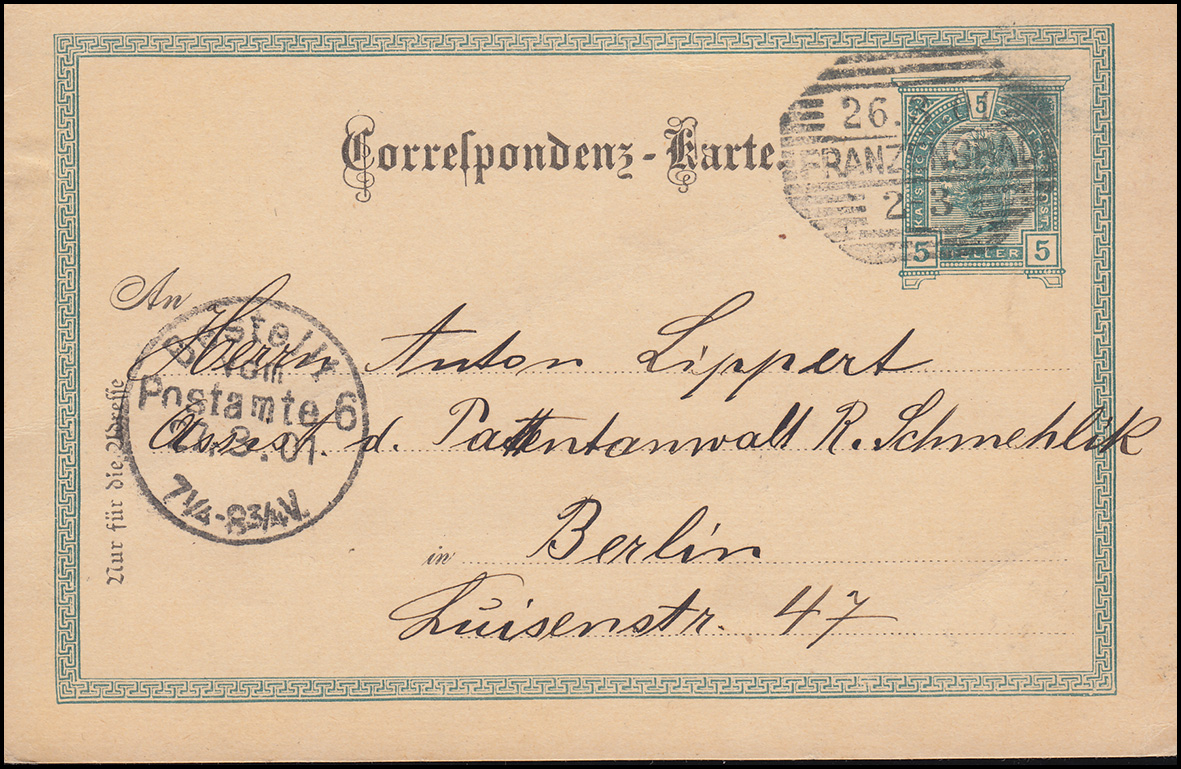 Correspondenz-Karte.
26.
FRANZENSBAD
2 3
5
5 HELLER 5
An Herrn Anton Lippert
Assist. d. Pattentanwalt R. Schmehlik
in Berlin
Luisenstr. 47
Bestellt
vom
Postamte 6
8.01
7¼-8¾V.
Nur für die Adresse